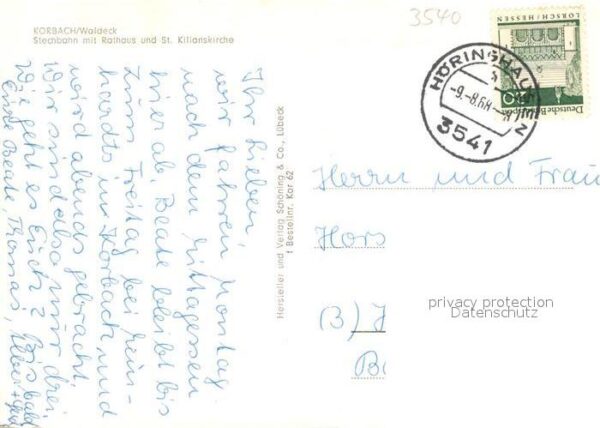 KORBACH/Waldeck
Stechbahn mit Rathaus und St. Kilianskirche
3540
LORSCH/HESSEN
Deutsche Bundespost
HÖRINGHAUSEN
-9.-8.68-
3541
Ihr Lieben
wir fahren Montag
nach dem Mittagessen
hier ab. Beate bleibt bis
zum Freitag bei
hardts in Korbach und
wird abends gebracht.
Wir sind also nur drei.
Wie geht es Euch? Bis bald
Eure Beate, Thomas,
Hersteller und Verlag Schöning & Co., Lübeck
† Bestellnr. Kor 62
Herrn und Frau
Hors
(B)
privacy protection
Datenschutz